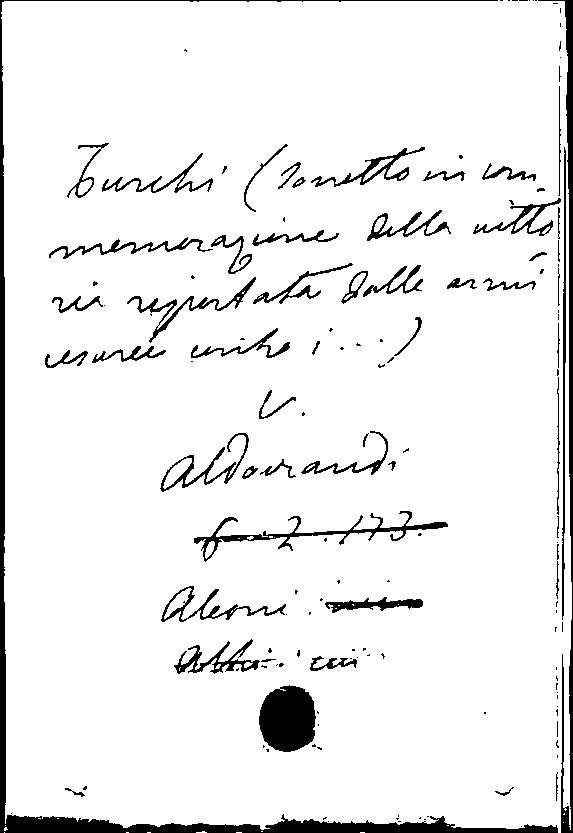 Turchi (Sonetto in com-
memorazione della vitto
ria riportata dalle armi
cesaree contro i ...)
V.
Aldovrandi
6 2.173.
Aleoni